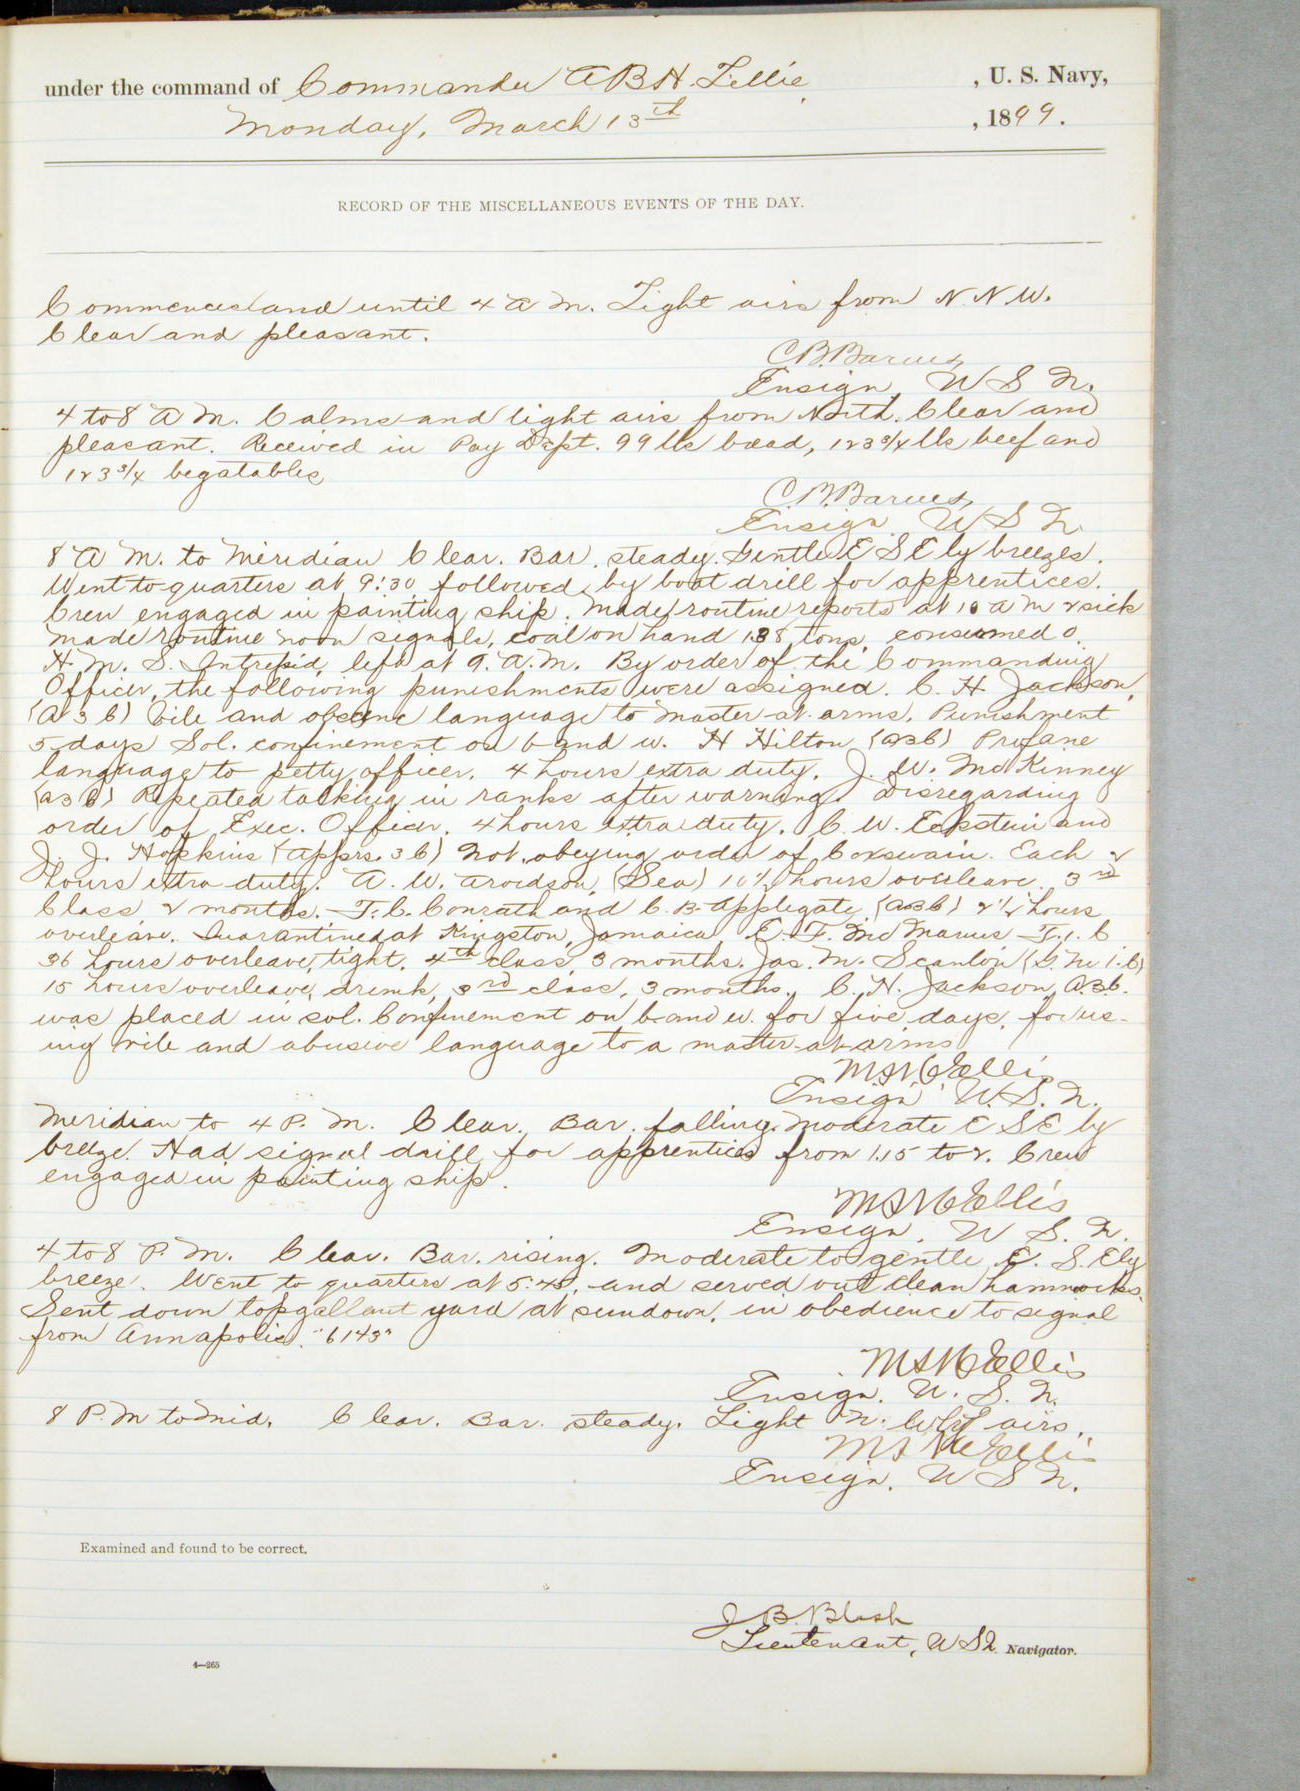 under the command of Commander A B H Lillie, U. S. Navy,
Monday, March 13th, 1899.
RECORD OF THE MISCELLANEOUS EVENTS OF THE DAY.
Commences and until 4 A M. Light airs from N N W.
Clear and pleasant.
C B. Barnes,
Ensign, U S N.
4 to 8 A M. Calms and light airs from North. Clear and
pleasant. Received in Pay Dept. 99 lbs bread, 123 3/4 lbs beef and
123 3/4 begatables
C B. Barnes,
Ensign U S N.
8 A M. to Meridian Clear. Bar. steady. Gentle E S E ly breezes.
Went to quarters at 9:30 followed by boat drill for apprentices.
Crew engaged in painting ship. Made routine reports at 10 A M & sick
made routine noon signals, coal on hand 138 tons, consumed 0.
H. M. S. Intrepid left at 9. A. M. By order of the Commanding
Officer, the following punishments were assigned. C. H Jackson,
(A 3 C) Vile and obscene language to master-at-arms. Punishment
5 days Sol. confinement on b and w. H Hilton (a3c) Profane
language to petty officer. 4 hours extra duty. J. W. McKinney
(a3c) Repeated talking in ranks after warning. Disregarding
order of Exec. Officer. 4 hours extra duty. C. W. Eckstein and
J. J. Hopkins (apprs. 3 C) Not obeying order of Coxswain. Each 2
hours extra duty. A. W. Arvidson, (Sea) 10 1/2 hours overleave 3rd
Class 2 months. F. C. Conrath and C. B. Applegate (a3c) 2 1/2 hours
overleave. Quarantined at Kingston, Jamaica E. F. McManus F. 1. C
36 hours overleave, tight. 4th class, 3 months. Jas. M. Scanlon (G. M 1. C)
15 hours overleave, drunk, 3rd class, 3 months. C. H. Jackson, A.3.C.
was placed in sol. Confinement on b and w. for five days, for us-
ing vile and abusive language to a master-at-arms
M St C Ellis
Ensign U. S. N.
Meridian to 4 P. M. Clear. Bar. falling. Moderate E S E ly
breeze. Had signal drill for apprentices from 1.15 to 2. Crew
engaged in painting ship.
M St C Ellis
Ensign, U S. N.
4 to 8 P. M. Clear. Bar. rising. Moderate to gentle E. S. Ely
breeze. Went to quarters at 5.45, and served out clean hammocks.
Sent down topgallant yard at sundown, in obedience to signal
from Annapolis. "6143"
M St C Ellis
Ensign. U. S. N.
8 P. M to Mid. Clear. Bar. steady. Light N. Wly airs.
M St C Ellis
Ensign, U S N.
Examined and found to be correct.
J. B. Blish
Lieutenant, U S N Navigator.
4—265